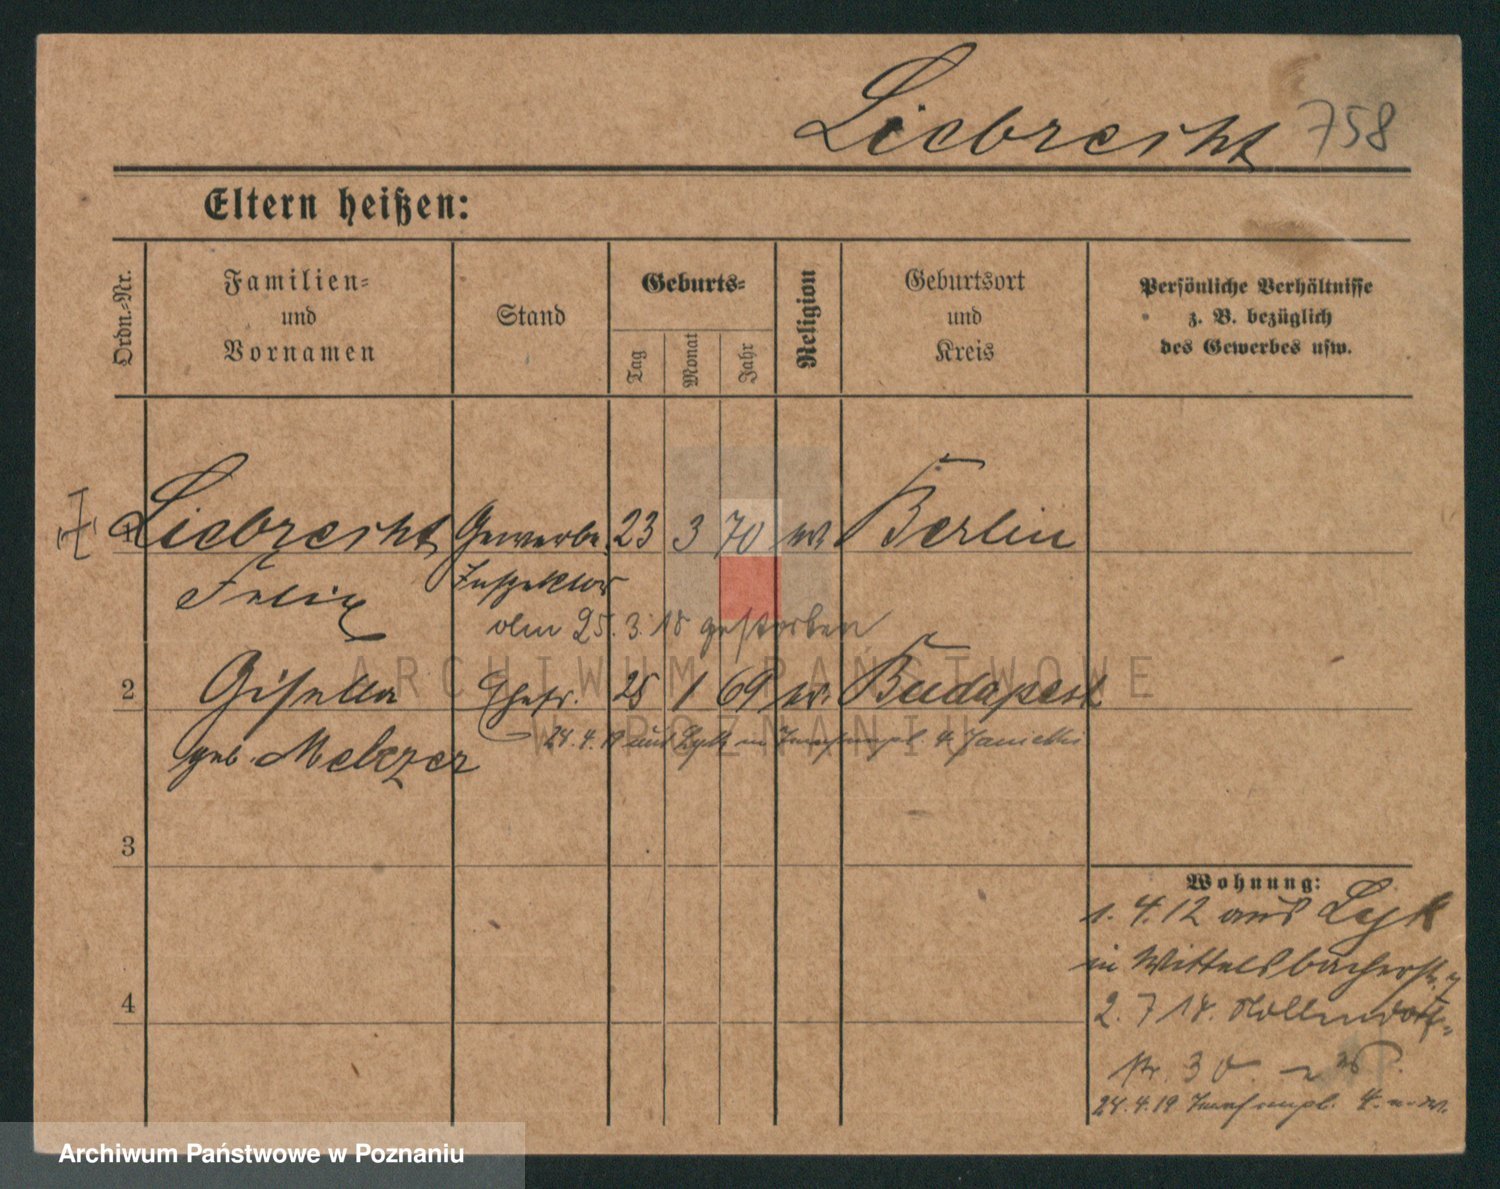 Liebrecht 758
Eltern heißen:
Ordn.-Nr.
Familien-
und
Vornamen
Stand
Geburts-
Tag
Monat
Jahr
Religion
Geburtsort
und
Kreis
Persönliche Verhältnisse
z. B. bezüglich
des Gewerbes usw.
1 Liebrecht Gewerbe. 23 3 70 Berlin
Felix Inspektor
25.3.18 gestorben
2 Gisella Ehefr. 25 1 69 Budapest
geb. Melzer
24.4.19 aus Lyk in
3
4
Wohnung:
1.4.12 aus Lyk
in Wittelsbacherstr. 7
2.7.18. Nollendorf-
str. 30.
24.4.19
ARCHIWUM PAŃSTWOWE
W POZNANIU
Archiwum Państwowe w Poznaniu